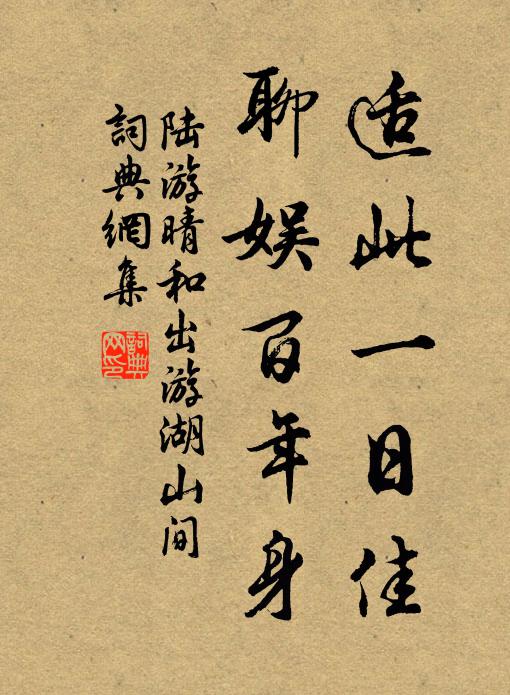 适此一日佳
聊娱百年身
陆游晴和出游湖山间
詞典網集
詞典网印